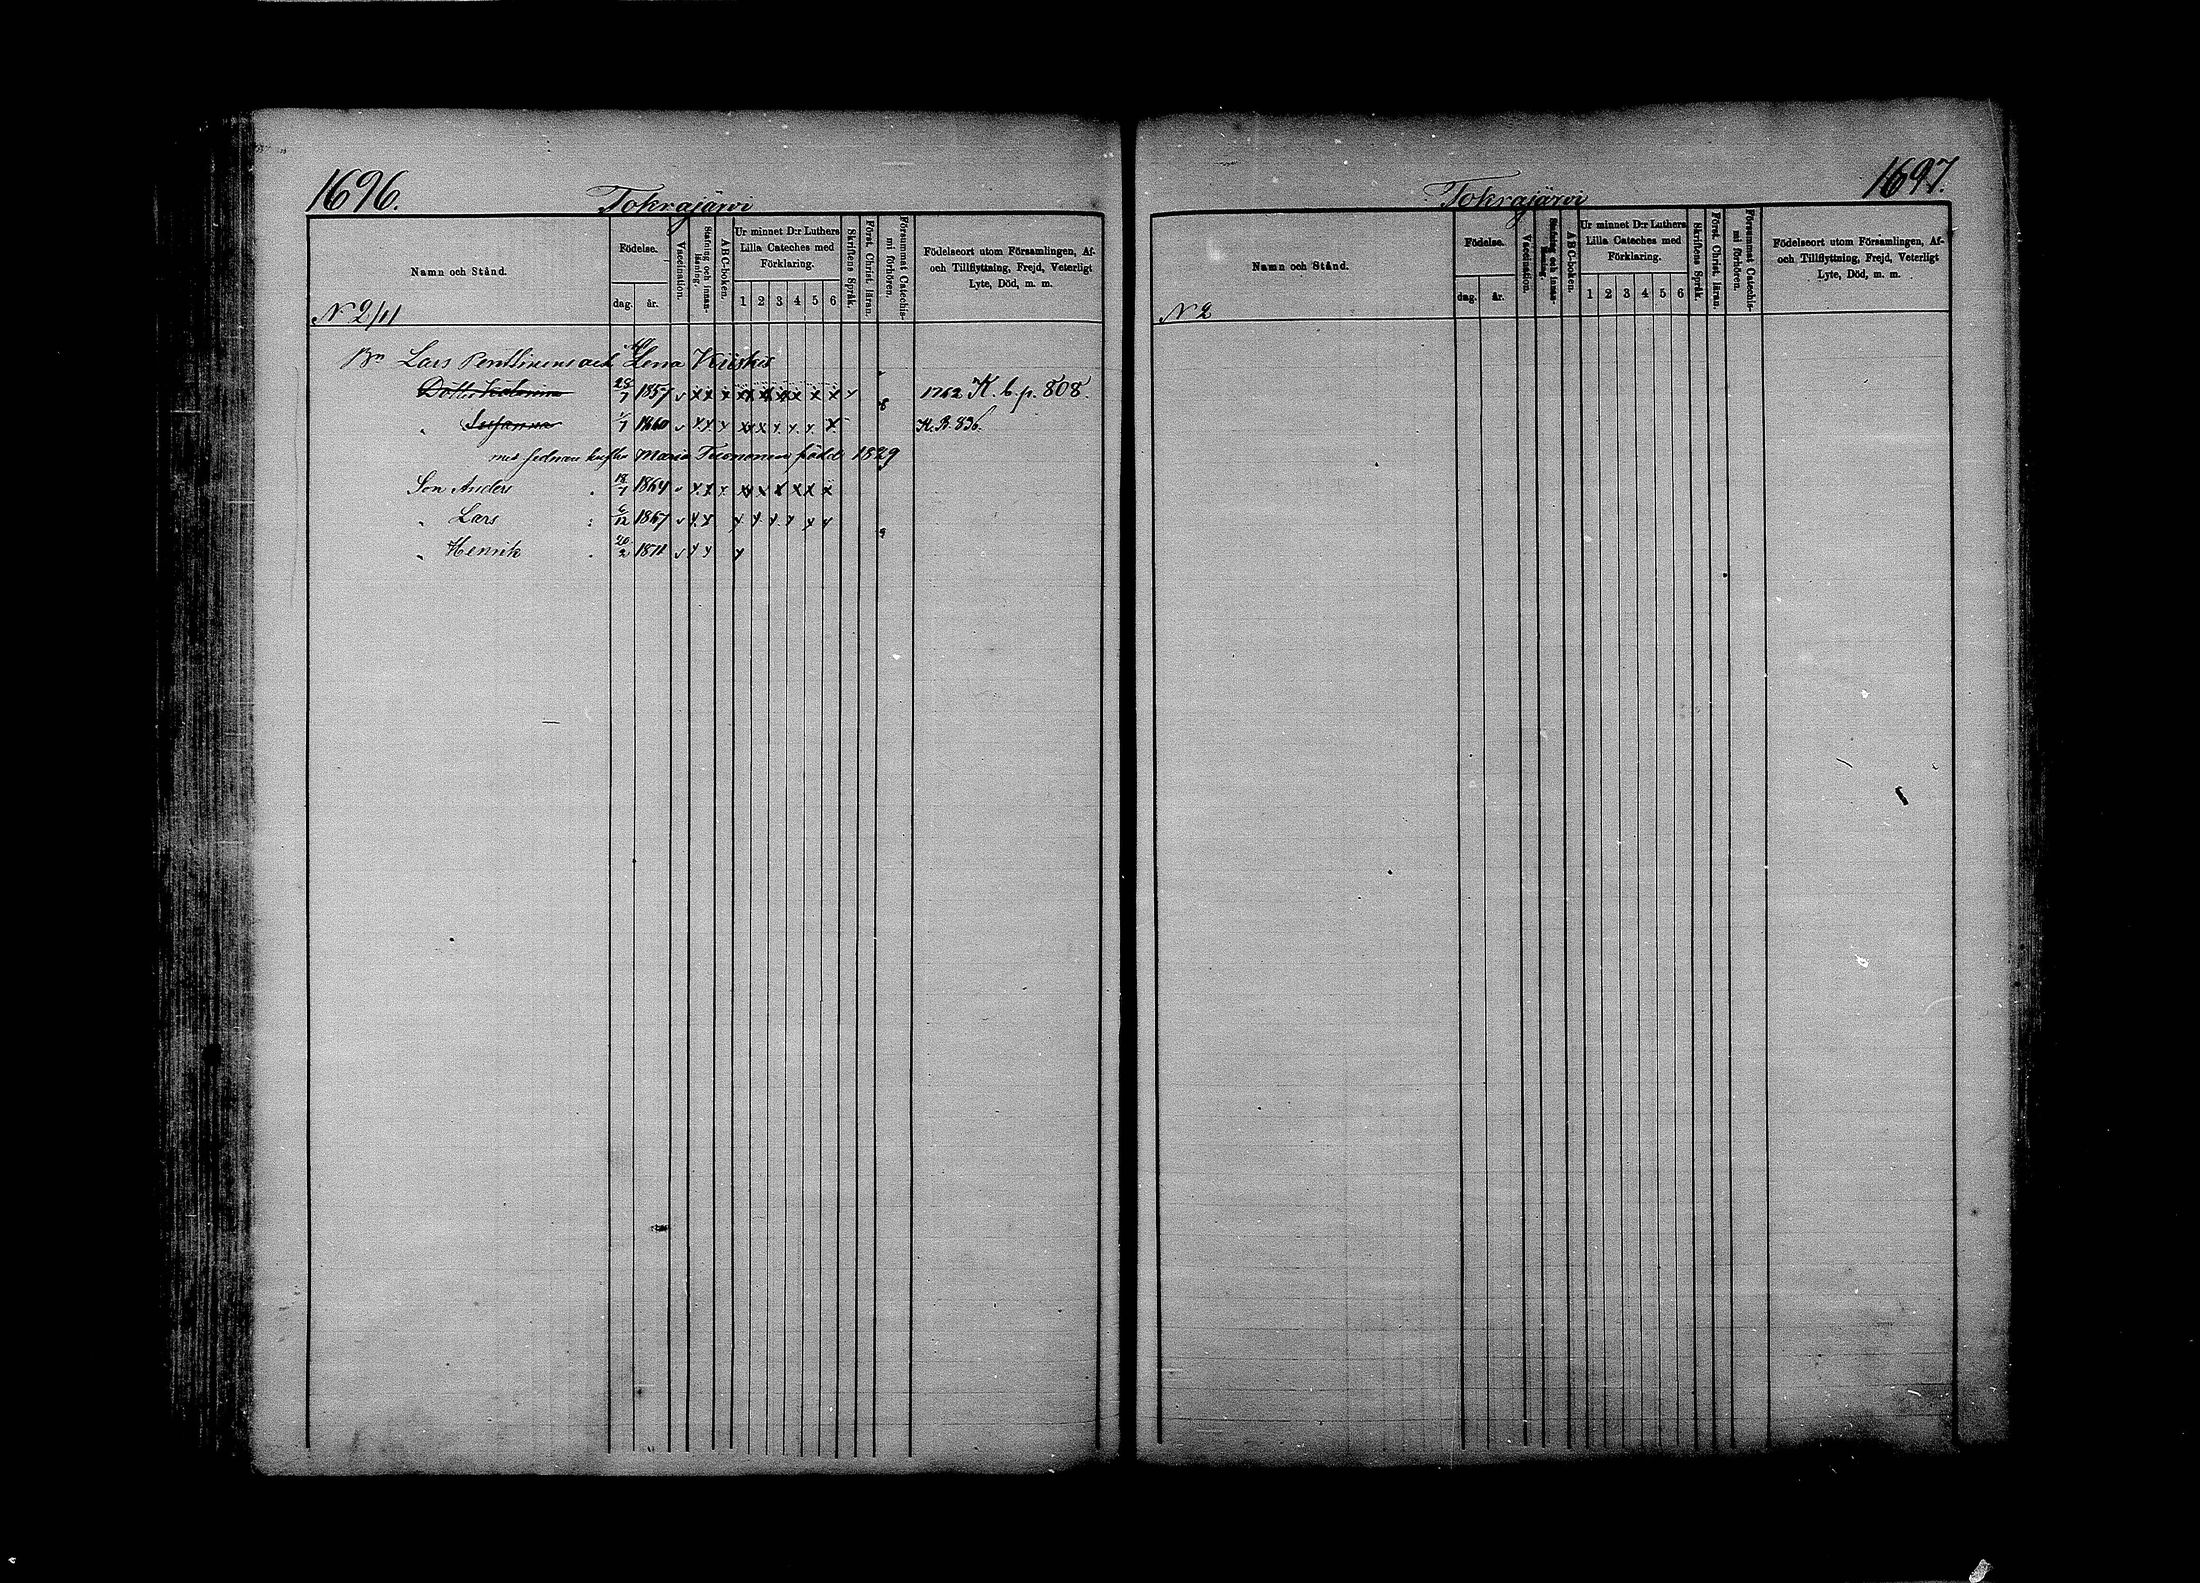 1696.
Tokrajärvi
Namn och Stånd.
Födelse.
dag.
år.
Vaccination.
Stafning och innanläsning.
ABC-boken.
Ur minnet D:r Luthers
Lilla Cateches med
Förklaring.
1 2 3 4 5 6
Skriftens Språk.
Först. Christ. läran.
Försummat Catechismi förhören.
Födelseort utom Församlingen, Af-
och Tillflyttning, Frejd, Veterligt
Lyte, Död, m. m.
N 2/11
Bn Lars Penttinens och Lena Kiiskis
Dotter Katarina 28/7 1857 v x x x x x x x x x 1762 K. b. p. 808.
„ Susanna 1/1 1860 v x x x x x x x x x K. B. 836.
Maria Tuononen född 1829
Son Anders 18/1 1864 x x x x x x x x x
„ Lars 6/12 1867 v x x x x x x x x
„ Henrik 20/2 1871 v x x x
Tokrajärvi
1697.
Namn och Stånd.
Födelse.
dag.
år.
Vaccination.
Stafning och innanläsning.
ABC-boken.
Ur minnet D:r Luthers
Lilla Cateches med
Förklaring.
1 2 3 4 5 6
Skriftens Språk.
Först. Christ. läran.
Försummat Catechismi förhören.
Födelseort utom Församlingen, Af-
och Tillflyttning, Frejd, Veterligt
Lyte, Död, m. m.
N 2